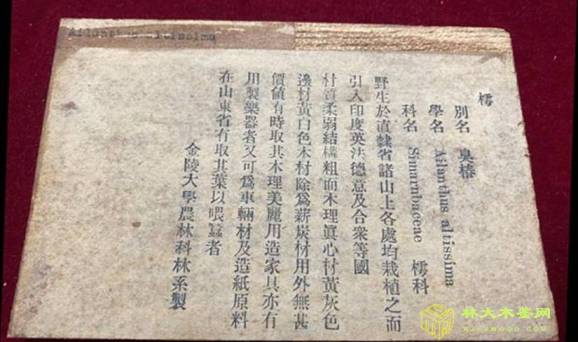 Ailanthus altissima
樗
別名 臭椿
學名 Ailanthus altissima
科名 Simarubaceae 樗科
野生於直隸省諸山上各處均栽植之而
引入印度英法德意及合衆等國
材質柔弱結構粗而木理眞心材黃灰色
邊材黃白色木材除爲薪炭材用外無甚
價値有時取其木理美麗用造家具亦有
用製樂器者又可爲車輛材及造紙原料
在山東省有取其葉以喂蠶者
金陵大學農林科林系製
林大木鉴网